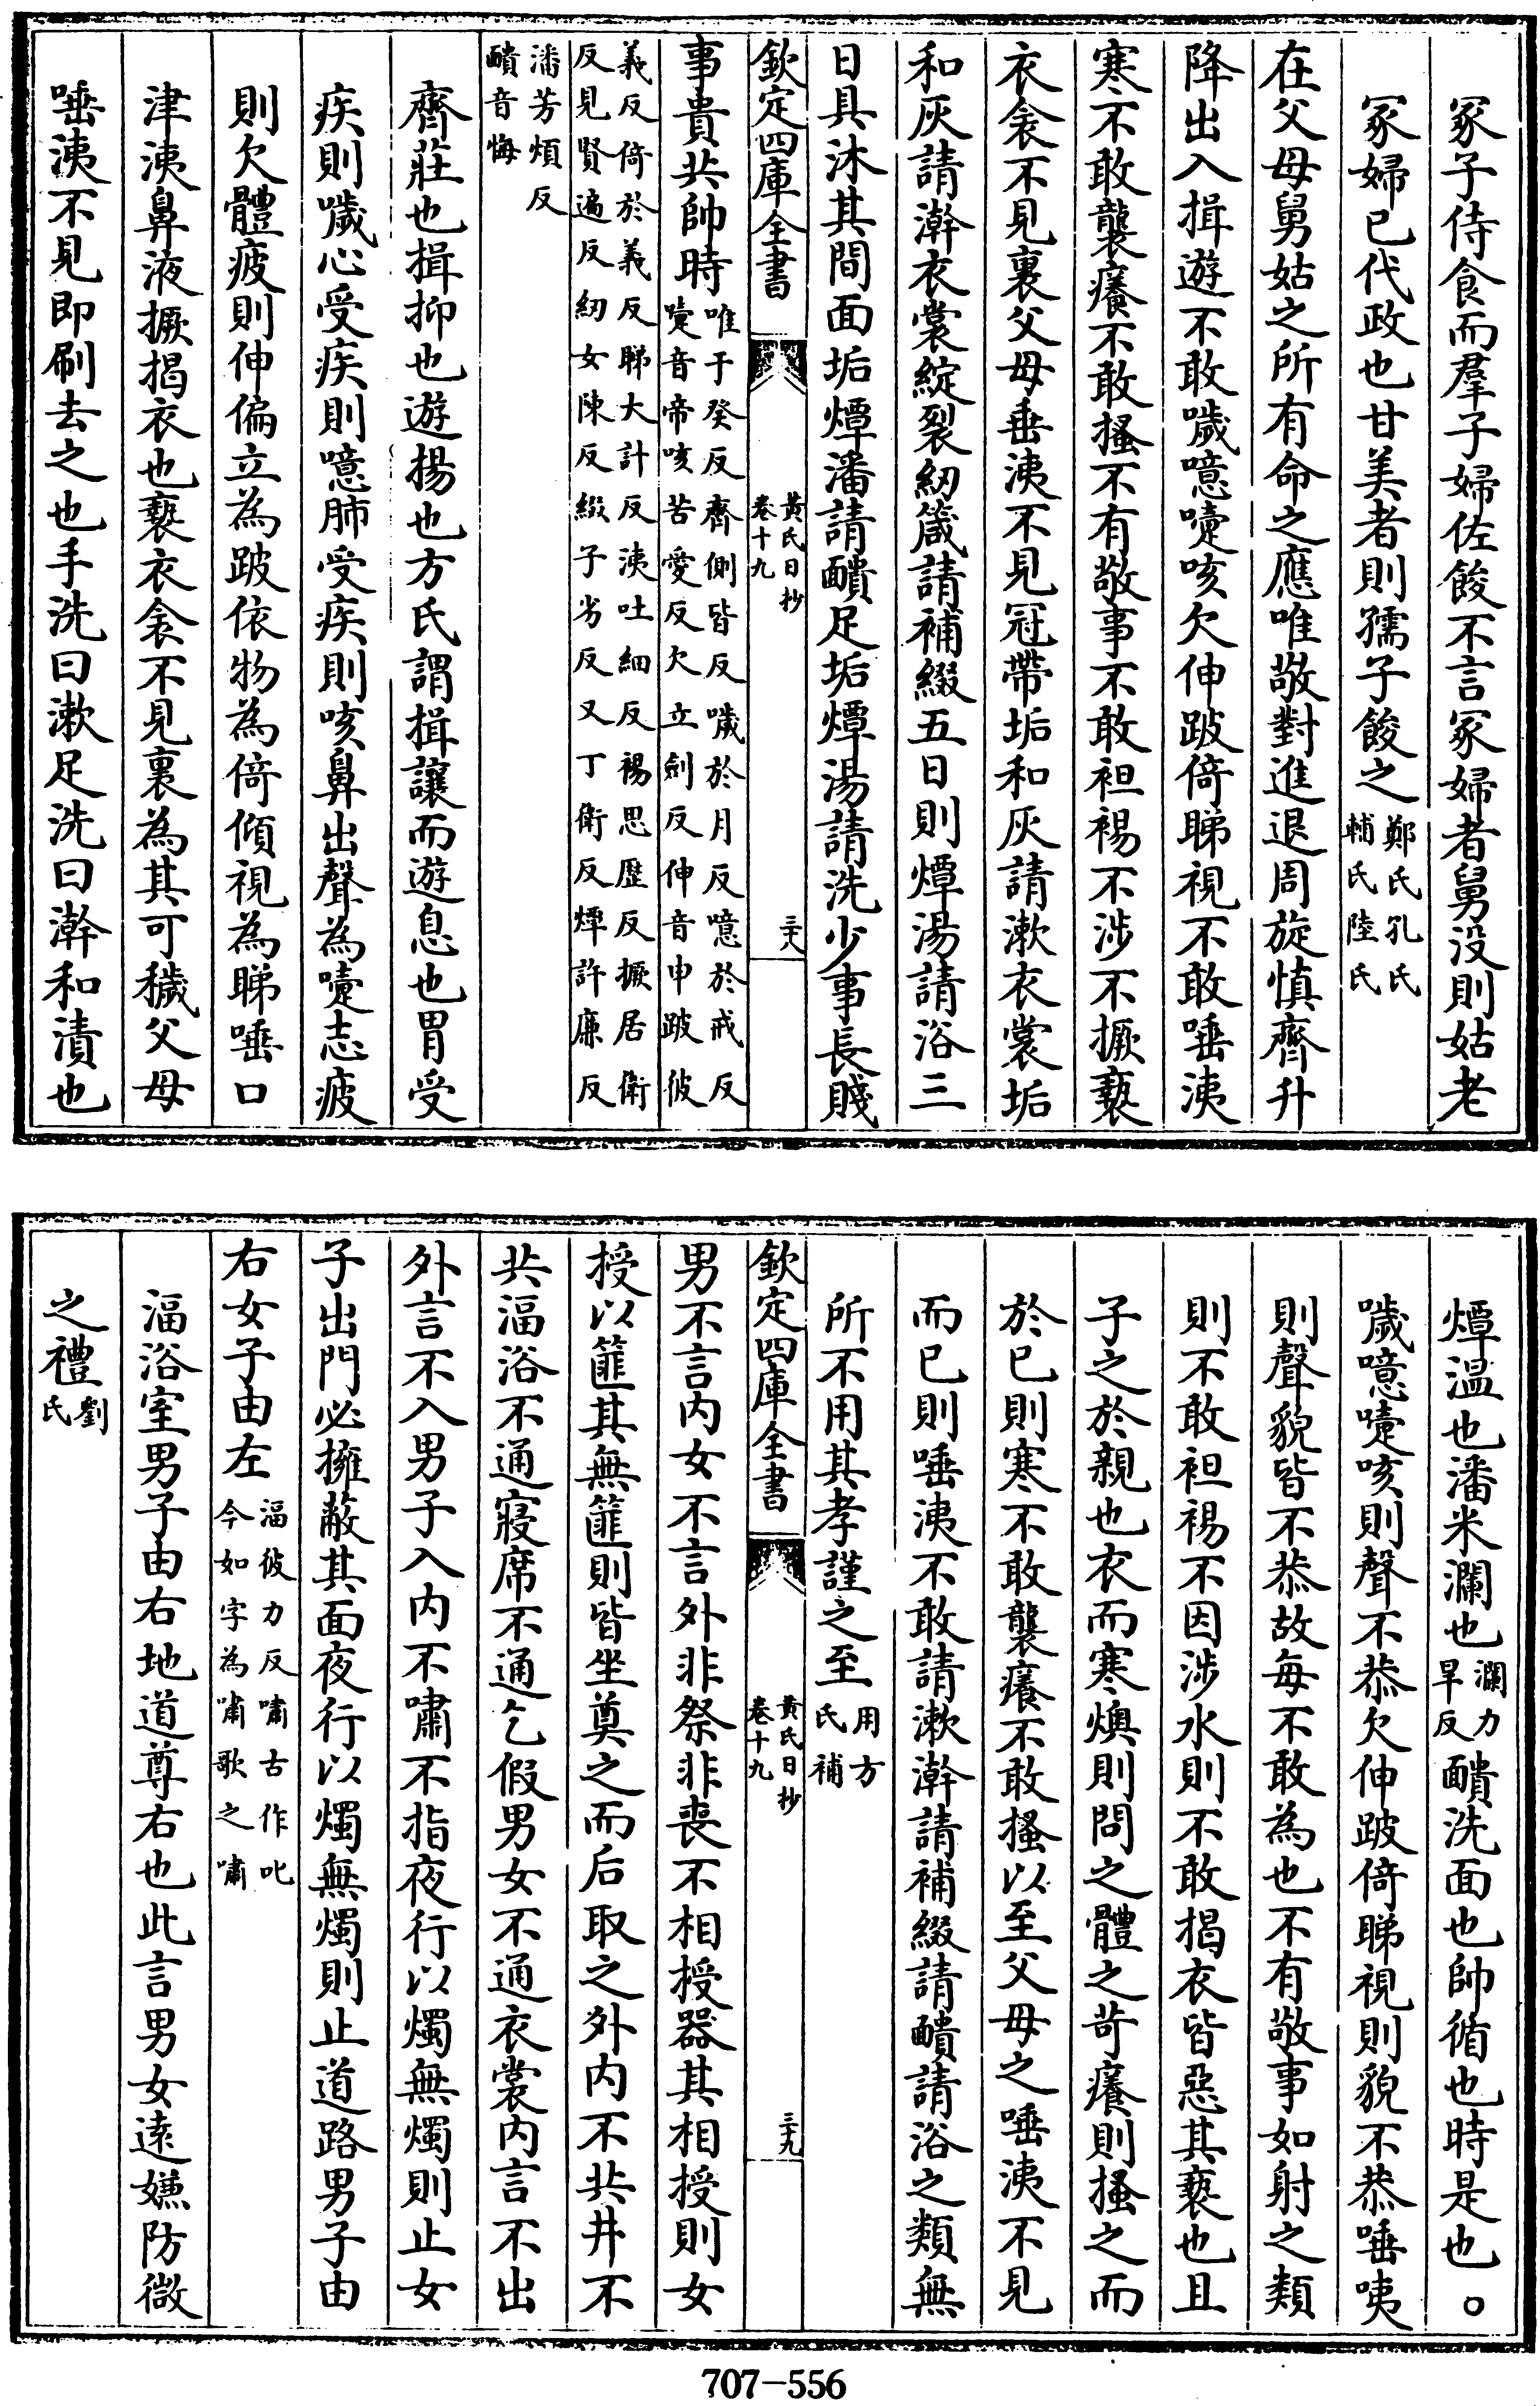 冡子侍食而羣子婦佐餕不言冡婦者舅没則姑老
冡婦已代政也甘美者則孺子餕之鄭氏孔氏
輔氏陸氏
在父母舅姑之所有命之應唯敬對進退周旋慎齊升
降出入揖遊不敢噦噫嚏咳欠伸跛倚睇視不敢唾洟
寒不敢襲癢不敢搔不有敬事不敢袒裼不涉不撅褻
衣衾不見裏父母唾洟不見冠帶垢和灰請漱衣裳垢
和灰請澣衣裳綻裂紉箴請補綴五日則燂湯請浴三
日具沐其間面垢燂潘請靧足垢燂湯請洗少事長賤
欽定四庫全書
黃氏日抄
卷十九
三十八
事貴共帥時唯于癸反齊側皆反噦於月反噫於戒反
嚏音帝咳苦愛反欠立劍反伸音申跛彼
義反倚於義反睇大計反洟吐細反裼思歷反撅居衛
反見賢遍反紉女陳反綴子劣反又丁衛反燂許廉反
潘芳煩反
靧音悔
齊莊也揖抑也遊揚也方氏謂揖讓而遊息也胃受
疾則噦心受疾則噫肺受疾則咳鼻出聲為嚏志疲
則欠體疲則伸偏立為跛依物為倚傾視為睇唾口
津洟鼻液撅揭衣也褻衣衾不見裏為其可穢父母
唾洟不見即刷去之也手洗曰漱足洗曰澣和漬也
燂温也潘米瀾也瀾力
早反靧洗面也帥循也時是也。
噦噫嚏咳則聲不恭欠伸跛倚睇視則貌不恭唾咦
則聲貌皆不恭故每不敢為也不有敬事如射之類
則不敢袒裼不因涉水則不敢揭衣皆惡其褻也且
子之於親也衣而寒燠則問之體之苛癢則搔之而
於已則寒不敢襲癢不敢搔以至父母之唾洟不見
而已則唾洟不敢請漱澣請補綴請靧請浴之類無
所不用其孝謹之至用方
氏補
欽定四庫全書
黃氏日抄
卷十九
三十九
男不言内女不言外非祭非丧不相授器其相授則女
授以篚其無篚則皆坐奠之而后取之外内不共井不
共湢浴不通寢席不通乞假男女不通衣裳内言不出
外言不入男子入内不嘯不指夜行以燭無燭則止女
子出門必擁蔽其面夜行以燭無燭則止道路男子由
右女子由左湢彼力反嘯古作叱
今如字為嘯歌之嘯
湢浴室男子由右地道尊右也此言男女遠嫌防微
之禮劉
氏
707-556